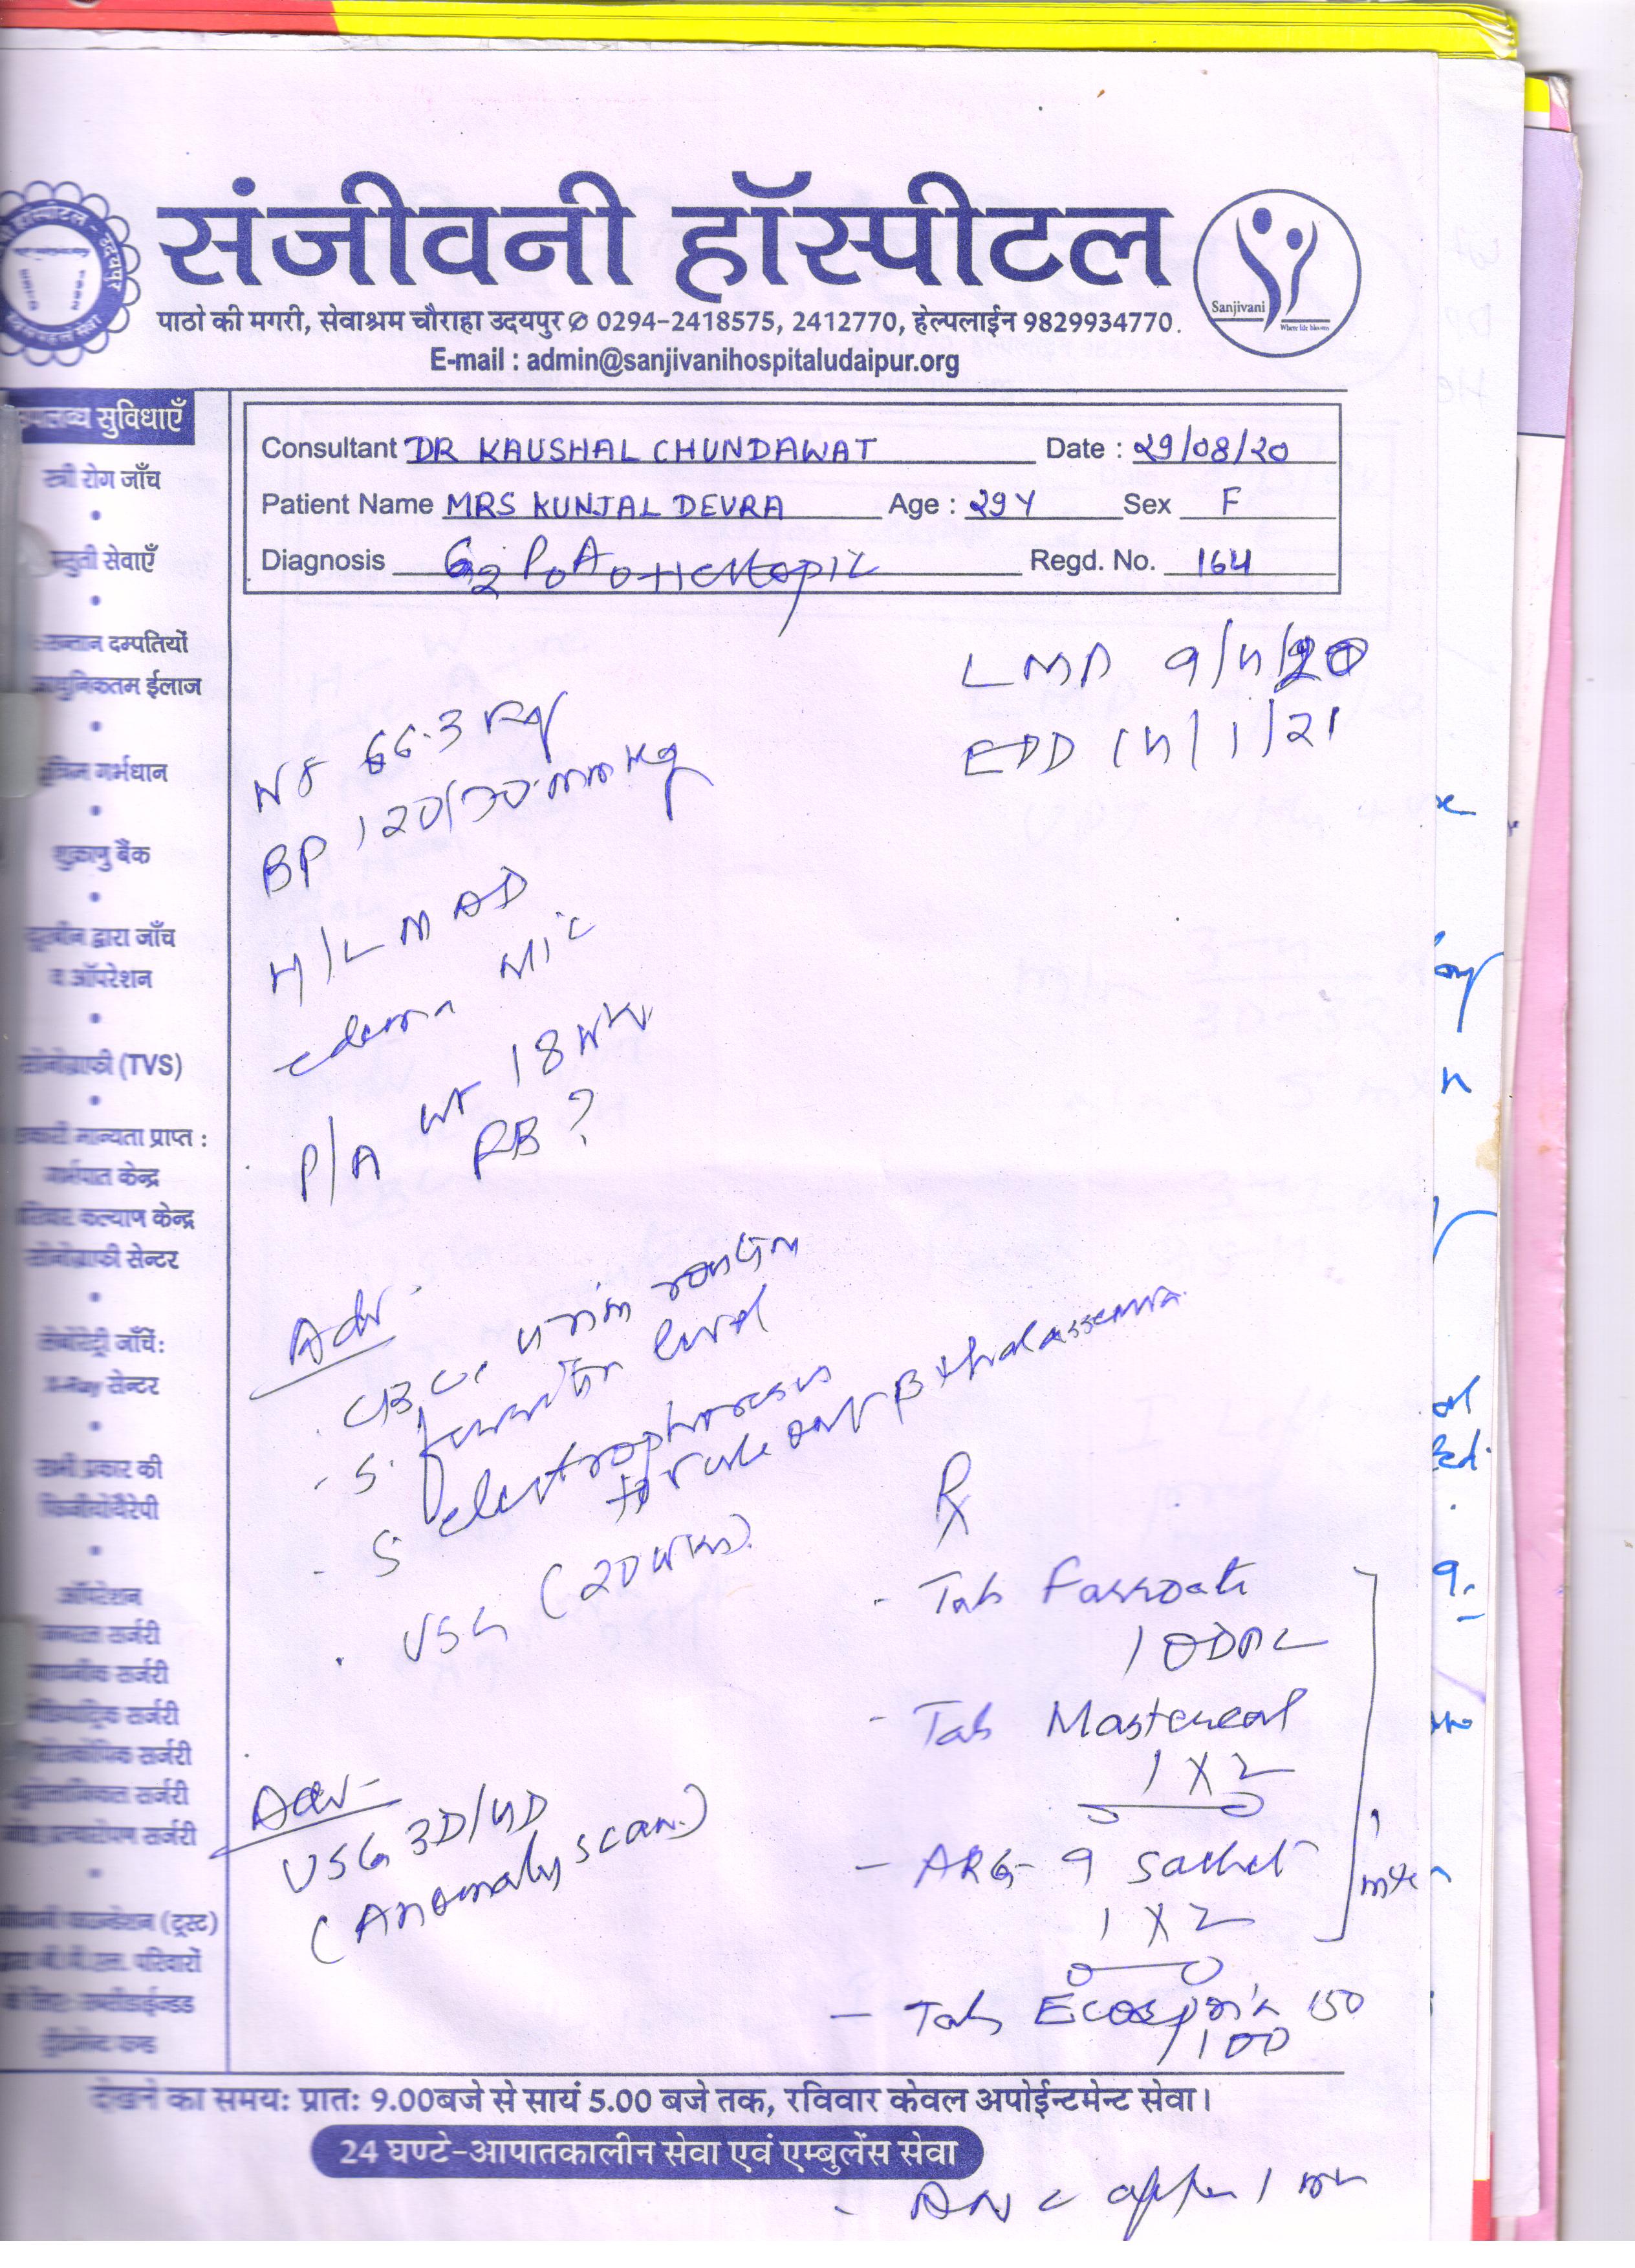 संजीवनी हॉस्पीटल
Sanjivani
Where life blooms
पाठो की मगरी, सेवाश्रम चौराहा उदयपुर ✆ 0294-2418575, 2412770, हेल्पलाईन 9829934770.
E-mail : admin@sanjivanihospitaludaipur.org
सुविधाएँ
स्त्री रोग जाँच
सेवाएँ
दम्पतियों
ईलाज
गर्भधान
शुक्राणु बैंक
दूरबीन द्वारा जाँच
व ऑपरेशन
सोनोग्राफी (TVS)
मान्यता प्राप्त :
गर्भपात केन्द्र
कल्याण केन्द्र
सोनोग्राफी सेन्टर
जाँचें:
X-Ray सेन्टर
सभी प्रकार की
फिजीयोथैरेपी
ऑपरेशन
जनरल सर्जरी
सर्जरी
सर्जरी
सर्जरी
सर्जरी
सर्जरी
(ट्रस्ट)
परिवारों
Consultant DR KAUSHAL CHUNDAWAT Date : 29/08/20
Patient Name MRS KUNJAL DEVRA Age : 29 Y Sex F
Diagnosis G2 P0 A0 Regd. No. 164
LMP 9/4/20
EDD 14/1/21
Wt 66.3 kg
BP 120/70 mmHg
H/L NAD
edema Nil
P/A ut 18 wk
FB ?
Adv
CBC, urine routine
- S. ferritin level
- S electrophoresis
to rule out β thalassemia
. USG (20 wks)
Rx
- Tab
1 OD
- Tab Mastercal
1 X 2
- ARG-9 sachet
1 X 2
- Tab Ecosprin 150
1 OD
Adv
USG 3D/4D
(Anomaly scan)
देखने का समय: प्रातः 9.00बजे से सायं 5.00 बजे तक, रविवार केवल अपोईन्टमेन्ट सेवा।
24 घण्टे-आपातकालीन सेवा एवं एम्बुलेंस सेवा
- ANC after 1